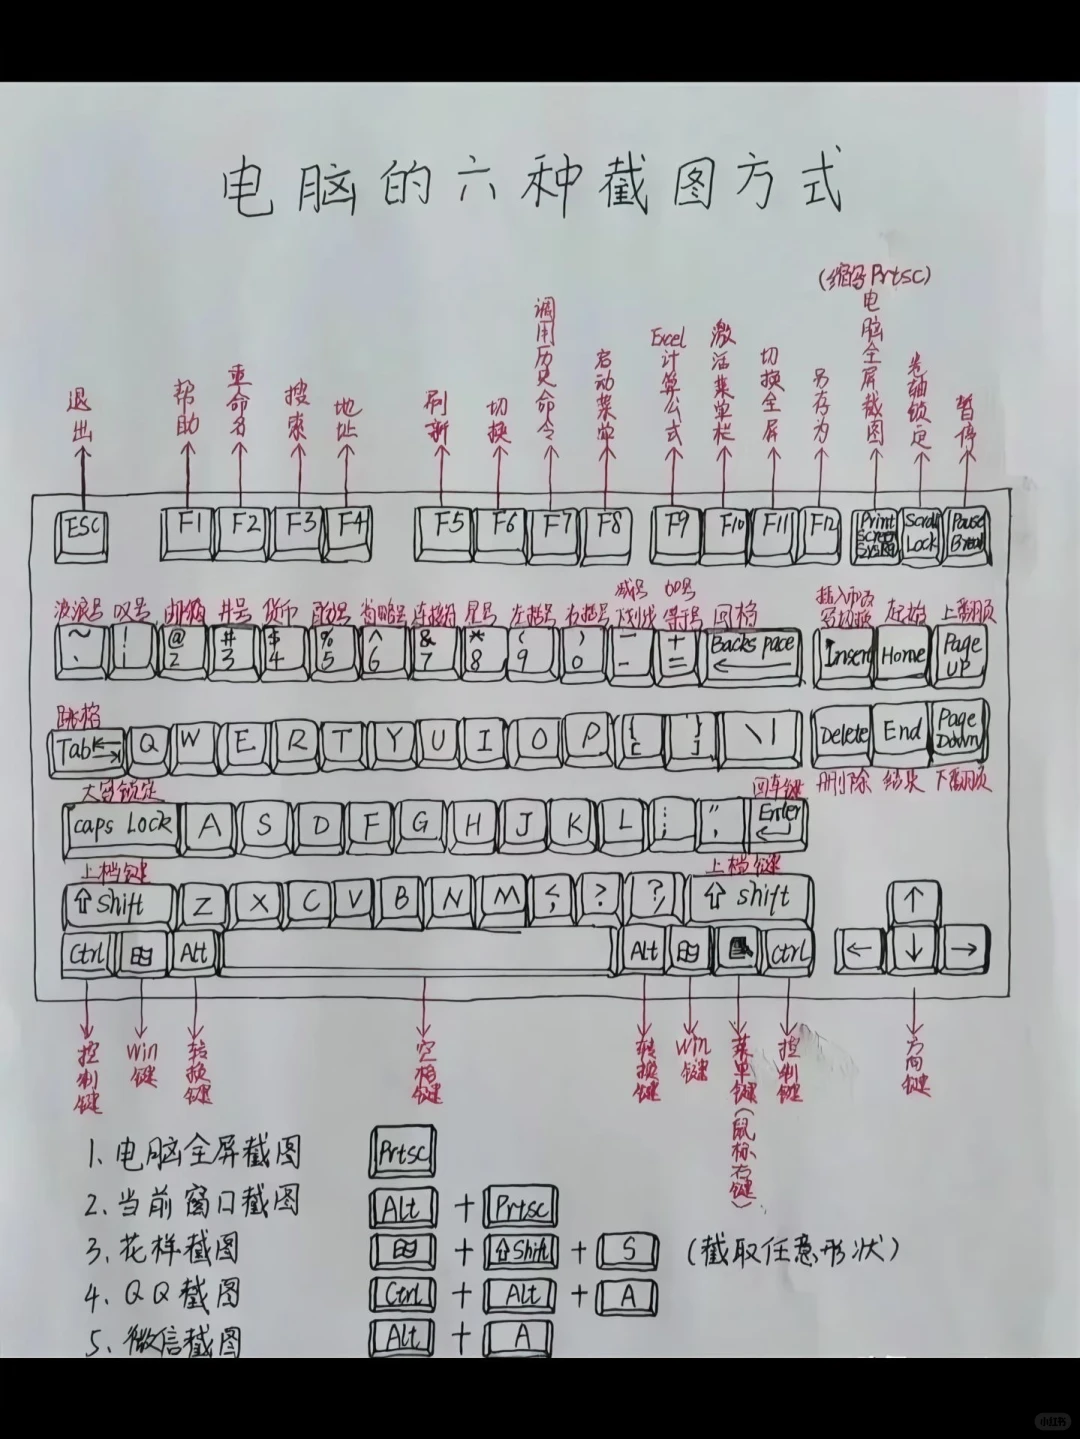 电脑的六种截图方式
(缩写Prtsc)
退出
帮助
重命名
搜索
地址
刷新
切换
调用历史命令
启动菜单
Excel计算公式
激活菜单栏
切换全屏
另存为
电脑全屏截图
卷轴锁定
暂停
ESC F1 F2 F3 F4 F5 F6 F7 F8 F9 F10 F11 F12 Print Screen Scroll Lock Pause
波浪号 叹号 井号 货币 省略号 连接符 星号 左括号 右括号 减号下划线 加号等号 回格 起始 上翻页
~ ! @ # $ % ^ & * ( ) — + Backspace Insert Home Page UP
` 1 2 3 4 5 6 7 8 9 0 - =
跳格
Tab Q W E R T Y U I O P { [ } ] \ | Delete End Page Down
大写锁定 回车键 删除 结束 下翻页
caps Lock A S D F G H J K L ; " , Enter
上档键 上档键
Shift Z X C V B N M < , > . ? / shift
Ctrl Alt Alt Ctrl
↑
← ↓ →
控制键
Win键
转换键
空格键
转换键
Win键
菜单键(鼠标右键)
控制键
方向键
1、电脑全屏截图 Prtsc
2、当前窗口截图 Alt + Prtsc
3、花样截图 + Shift + S (截取任意形状)
4、QQ截图 Ctrl + Alt + A
5、微信截图 Alt + A
小红书